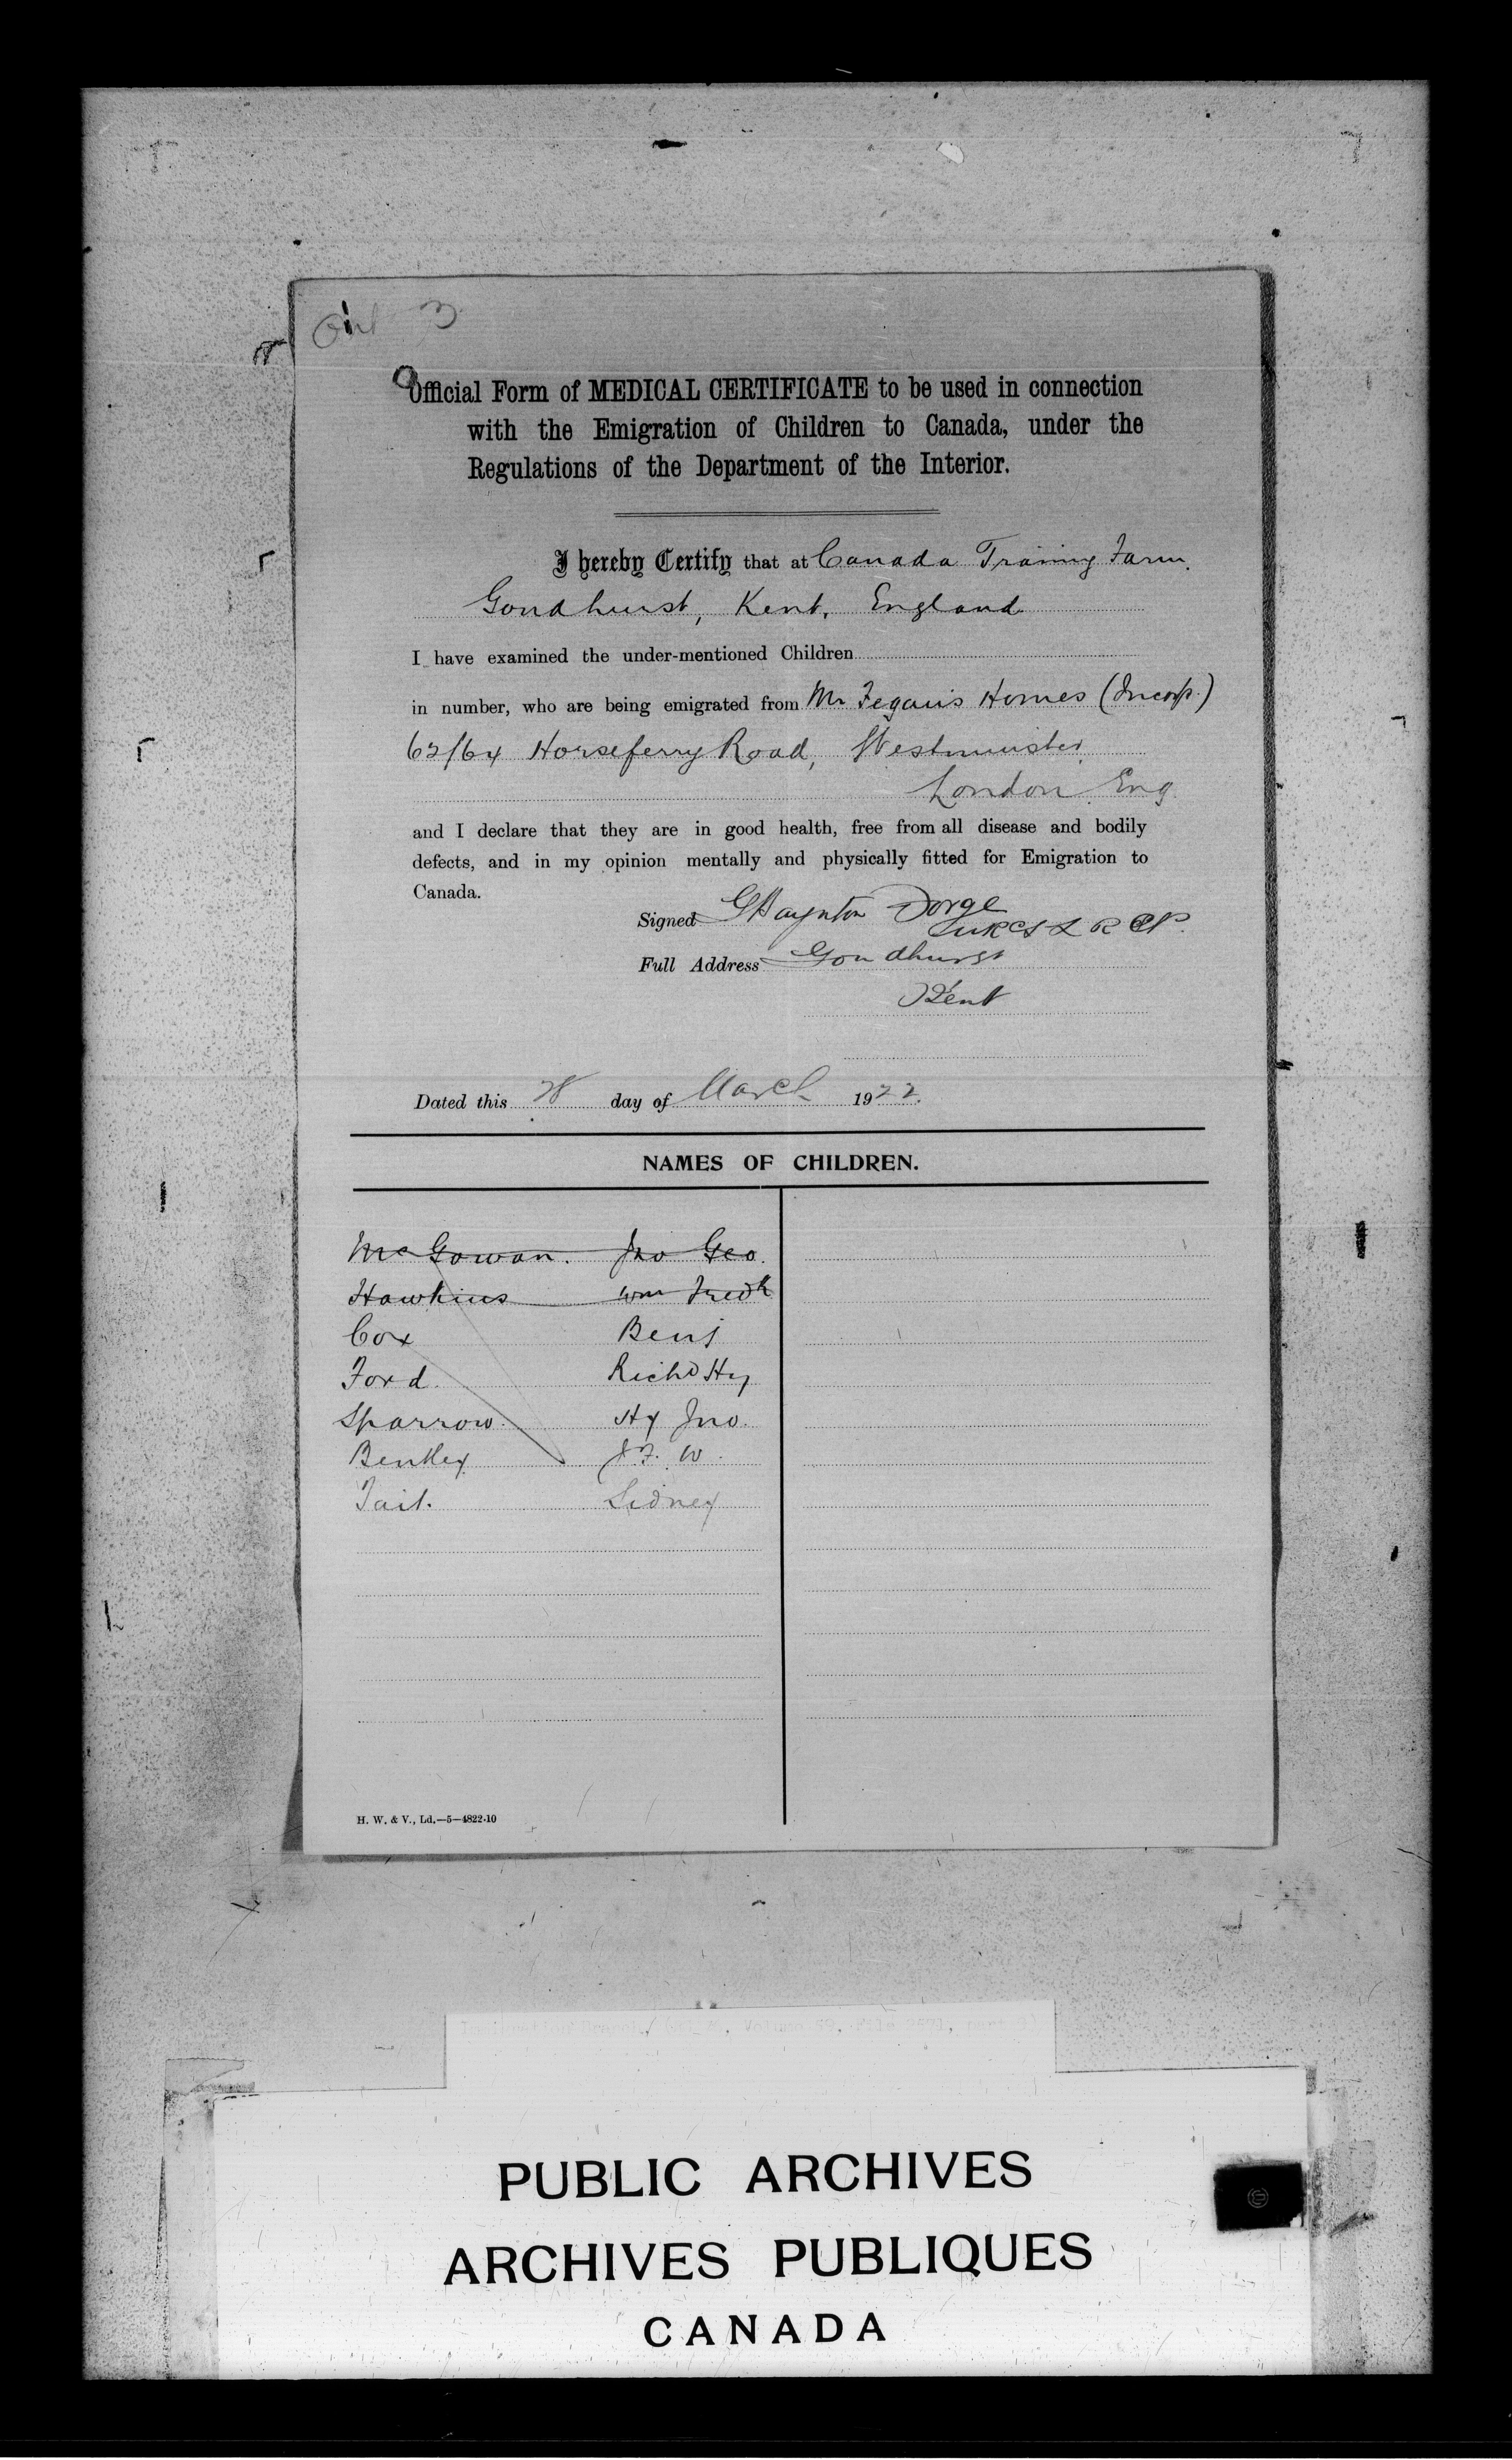 Official Form of MEDICAL CERTIFICATE to be used in connection
with the Emigration of Children to Canada, under the
Regulations of the Department of the Interior.
I hereby Certify that at Canada Training Farm.
Goudhurst, Kent, England
I have examined the under-mentioned Children
in number, who are being emigrated from Mr Fegan's Homes (Incorp.)
62/64 Horseferry Road, Westminster,
London. Eng.
and I declare that they are in good health, free from all disease and bodily
defects, and in my opinion mentally and physically fitted for Emigration to
Canada.
Signed
Full Address Goudhurst
Kent
Dated this 28 day of March 1922.
NAMES OF CHILDREN.
McGowan. Jno Geo.
Hawkins Wm Fredk
Cox Benj
Ford. Richd Hy
Sparrow. Hy Jno.
Bentley J. F. W.
Tait. Sidney
H. W. & V., Ld.—5—4822-10
PUBLIC ARCHIVES
ARCHIVES PUBLIQUES
CANADA